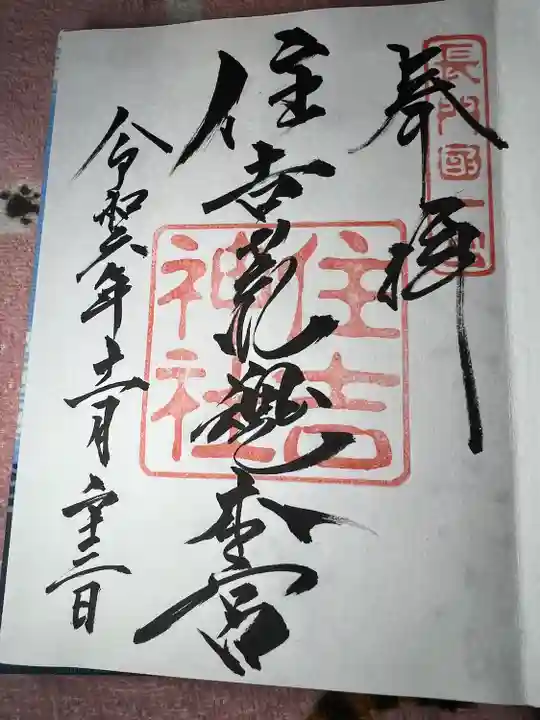 奉拝
長門國一宮
住吉荒魂本宮
住吉
神社
令和六年十二月二十三日